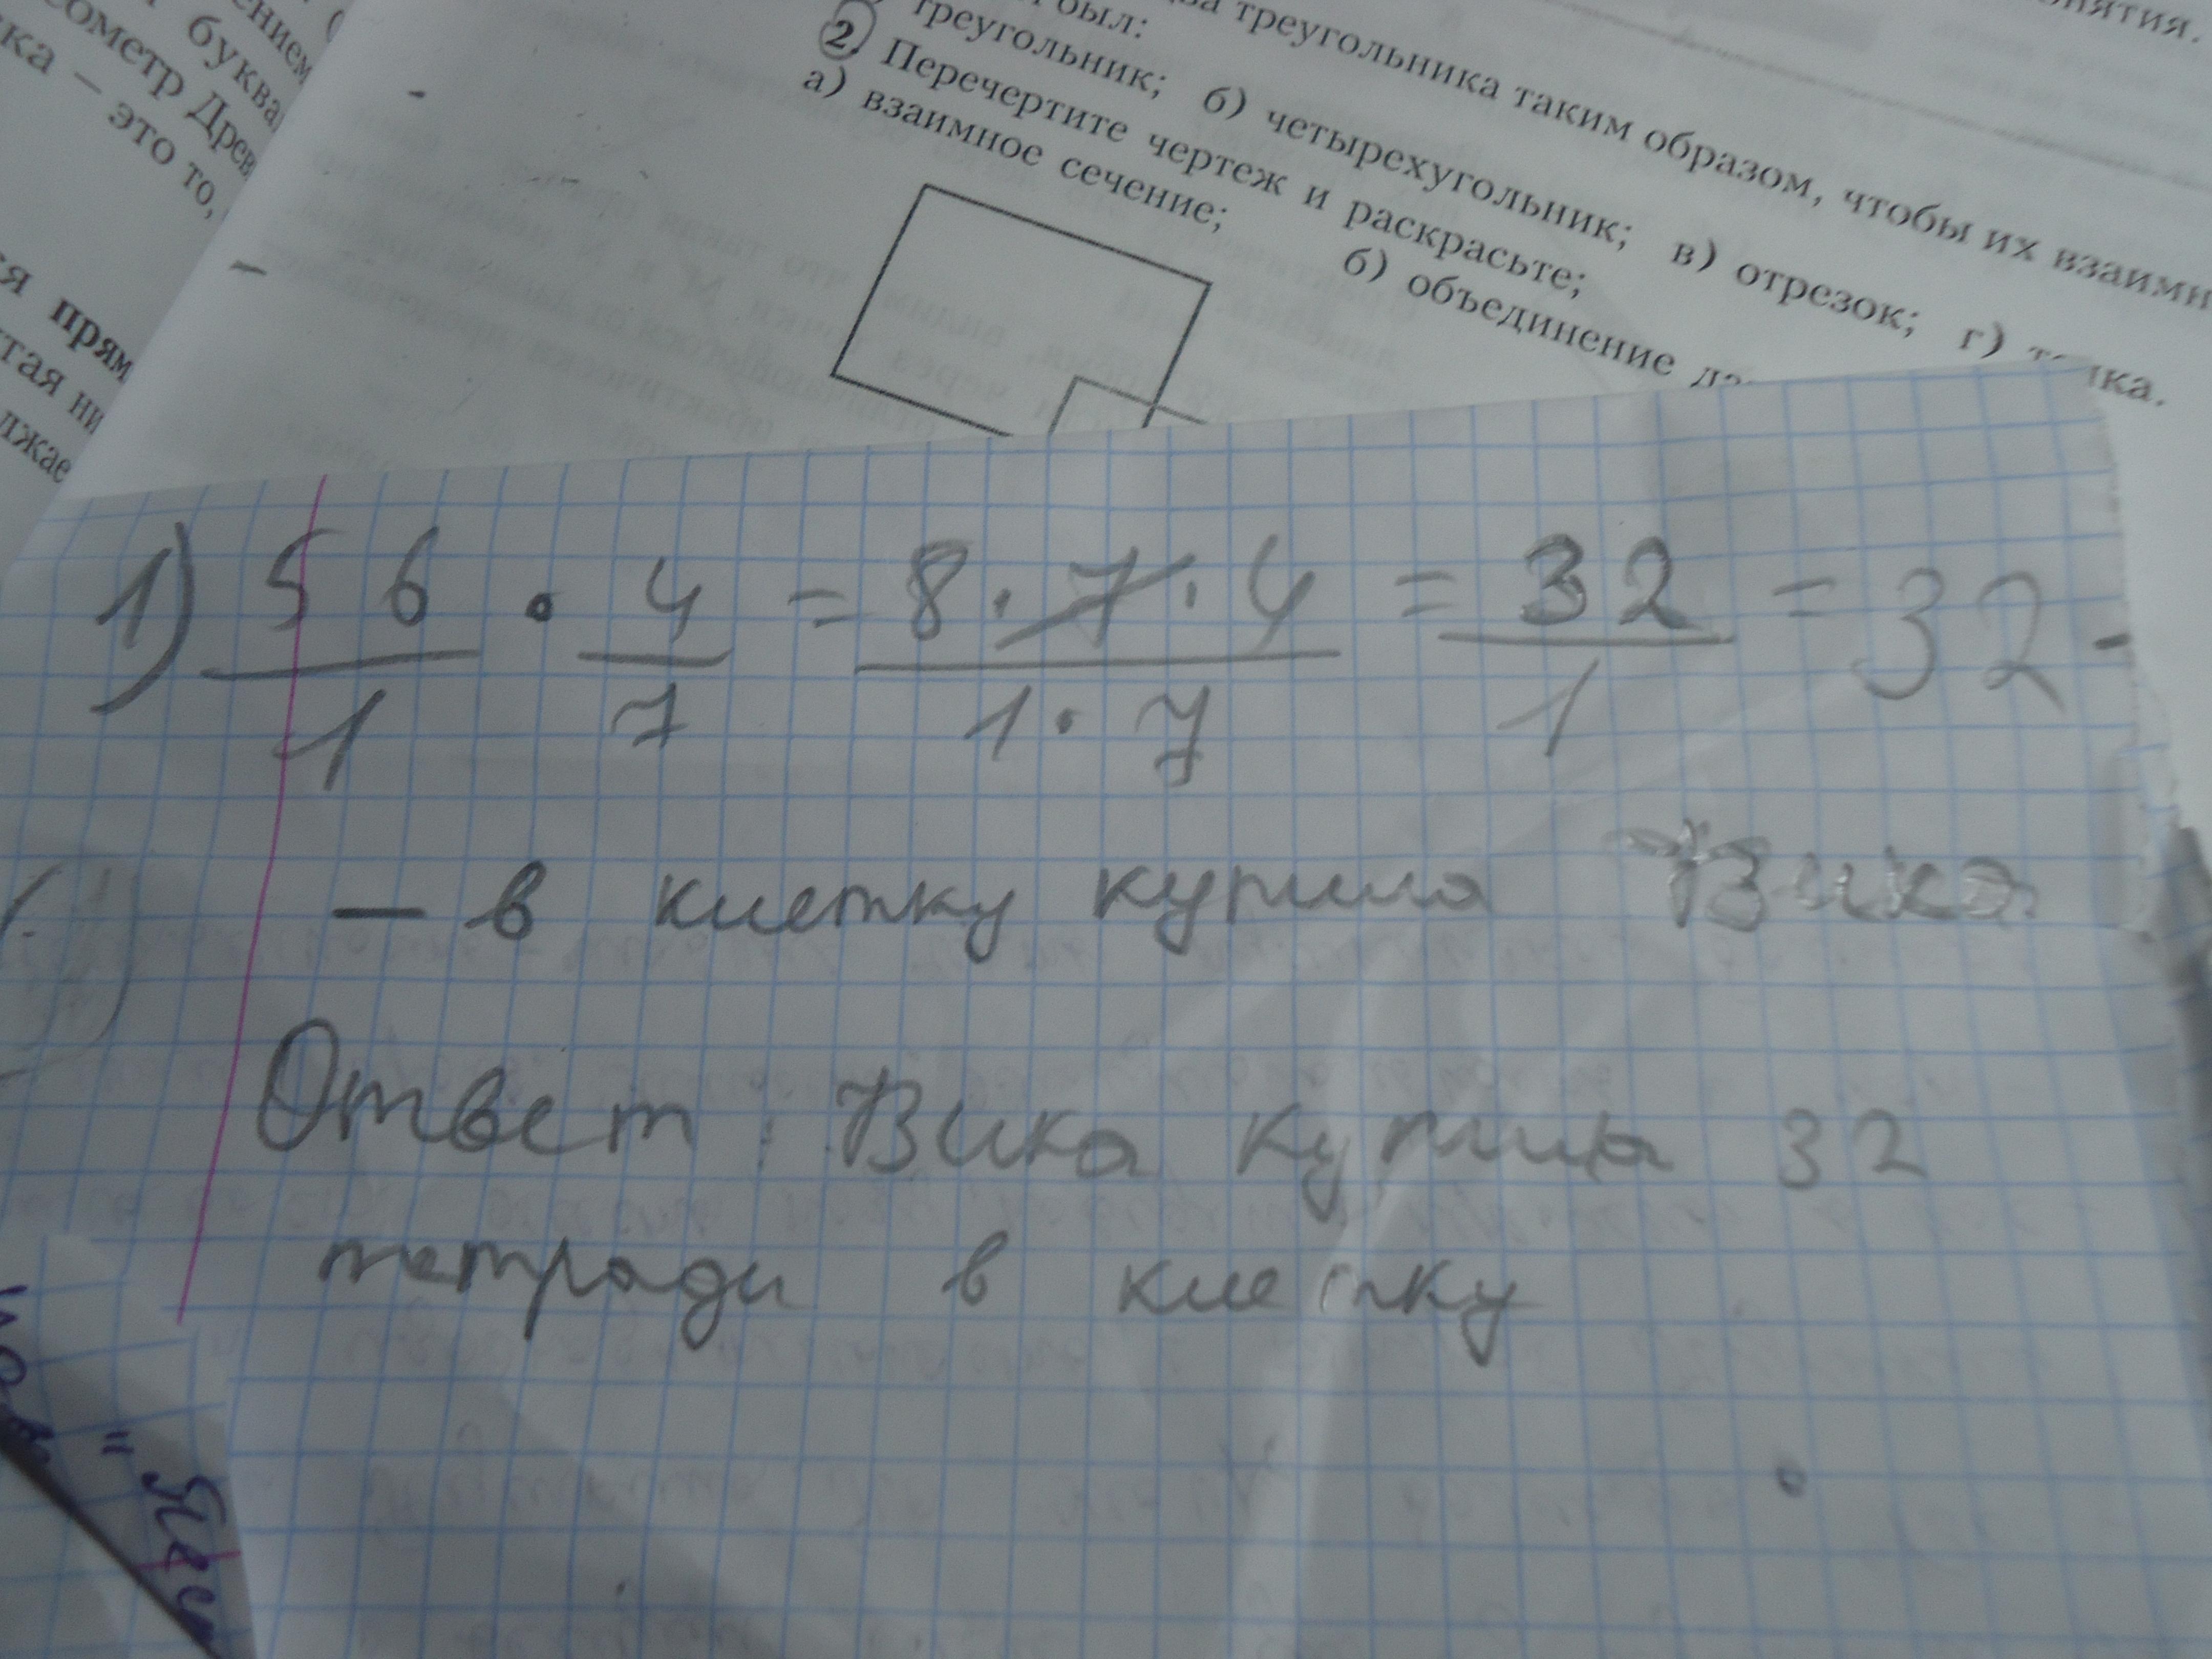 ением
буква
ометр Древ
ка – это то,
я прям
тая ни
лжае
нятия.
треугольника таким образом, чтобы их взаимн
был:
треугольник; б) четырехугольник; в) отрезок; г)
чка.
2. Перечертите чертеж и раскрасьте;
а) взаимное сечение; б) объединение
1) 56/1 · 4/7 = 8·7·4/1·7 = 32/1 = 32 -
— в клетку купила Вика
Ответ: Вика купила 32
тетради в клетку